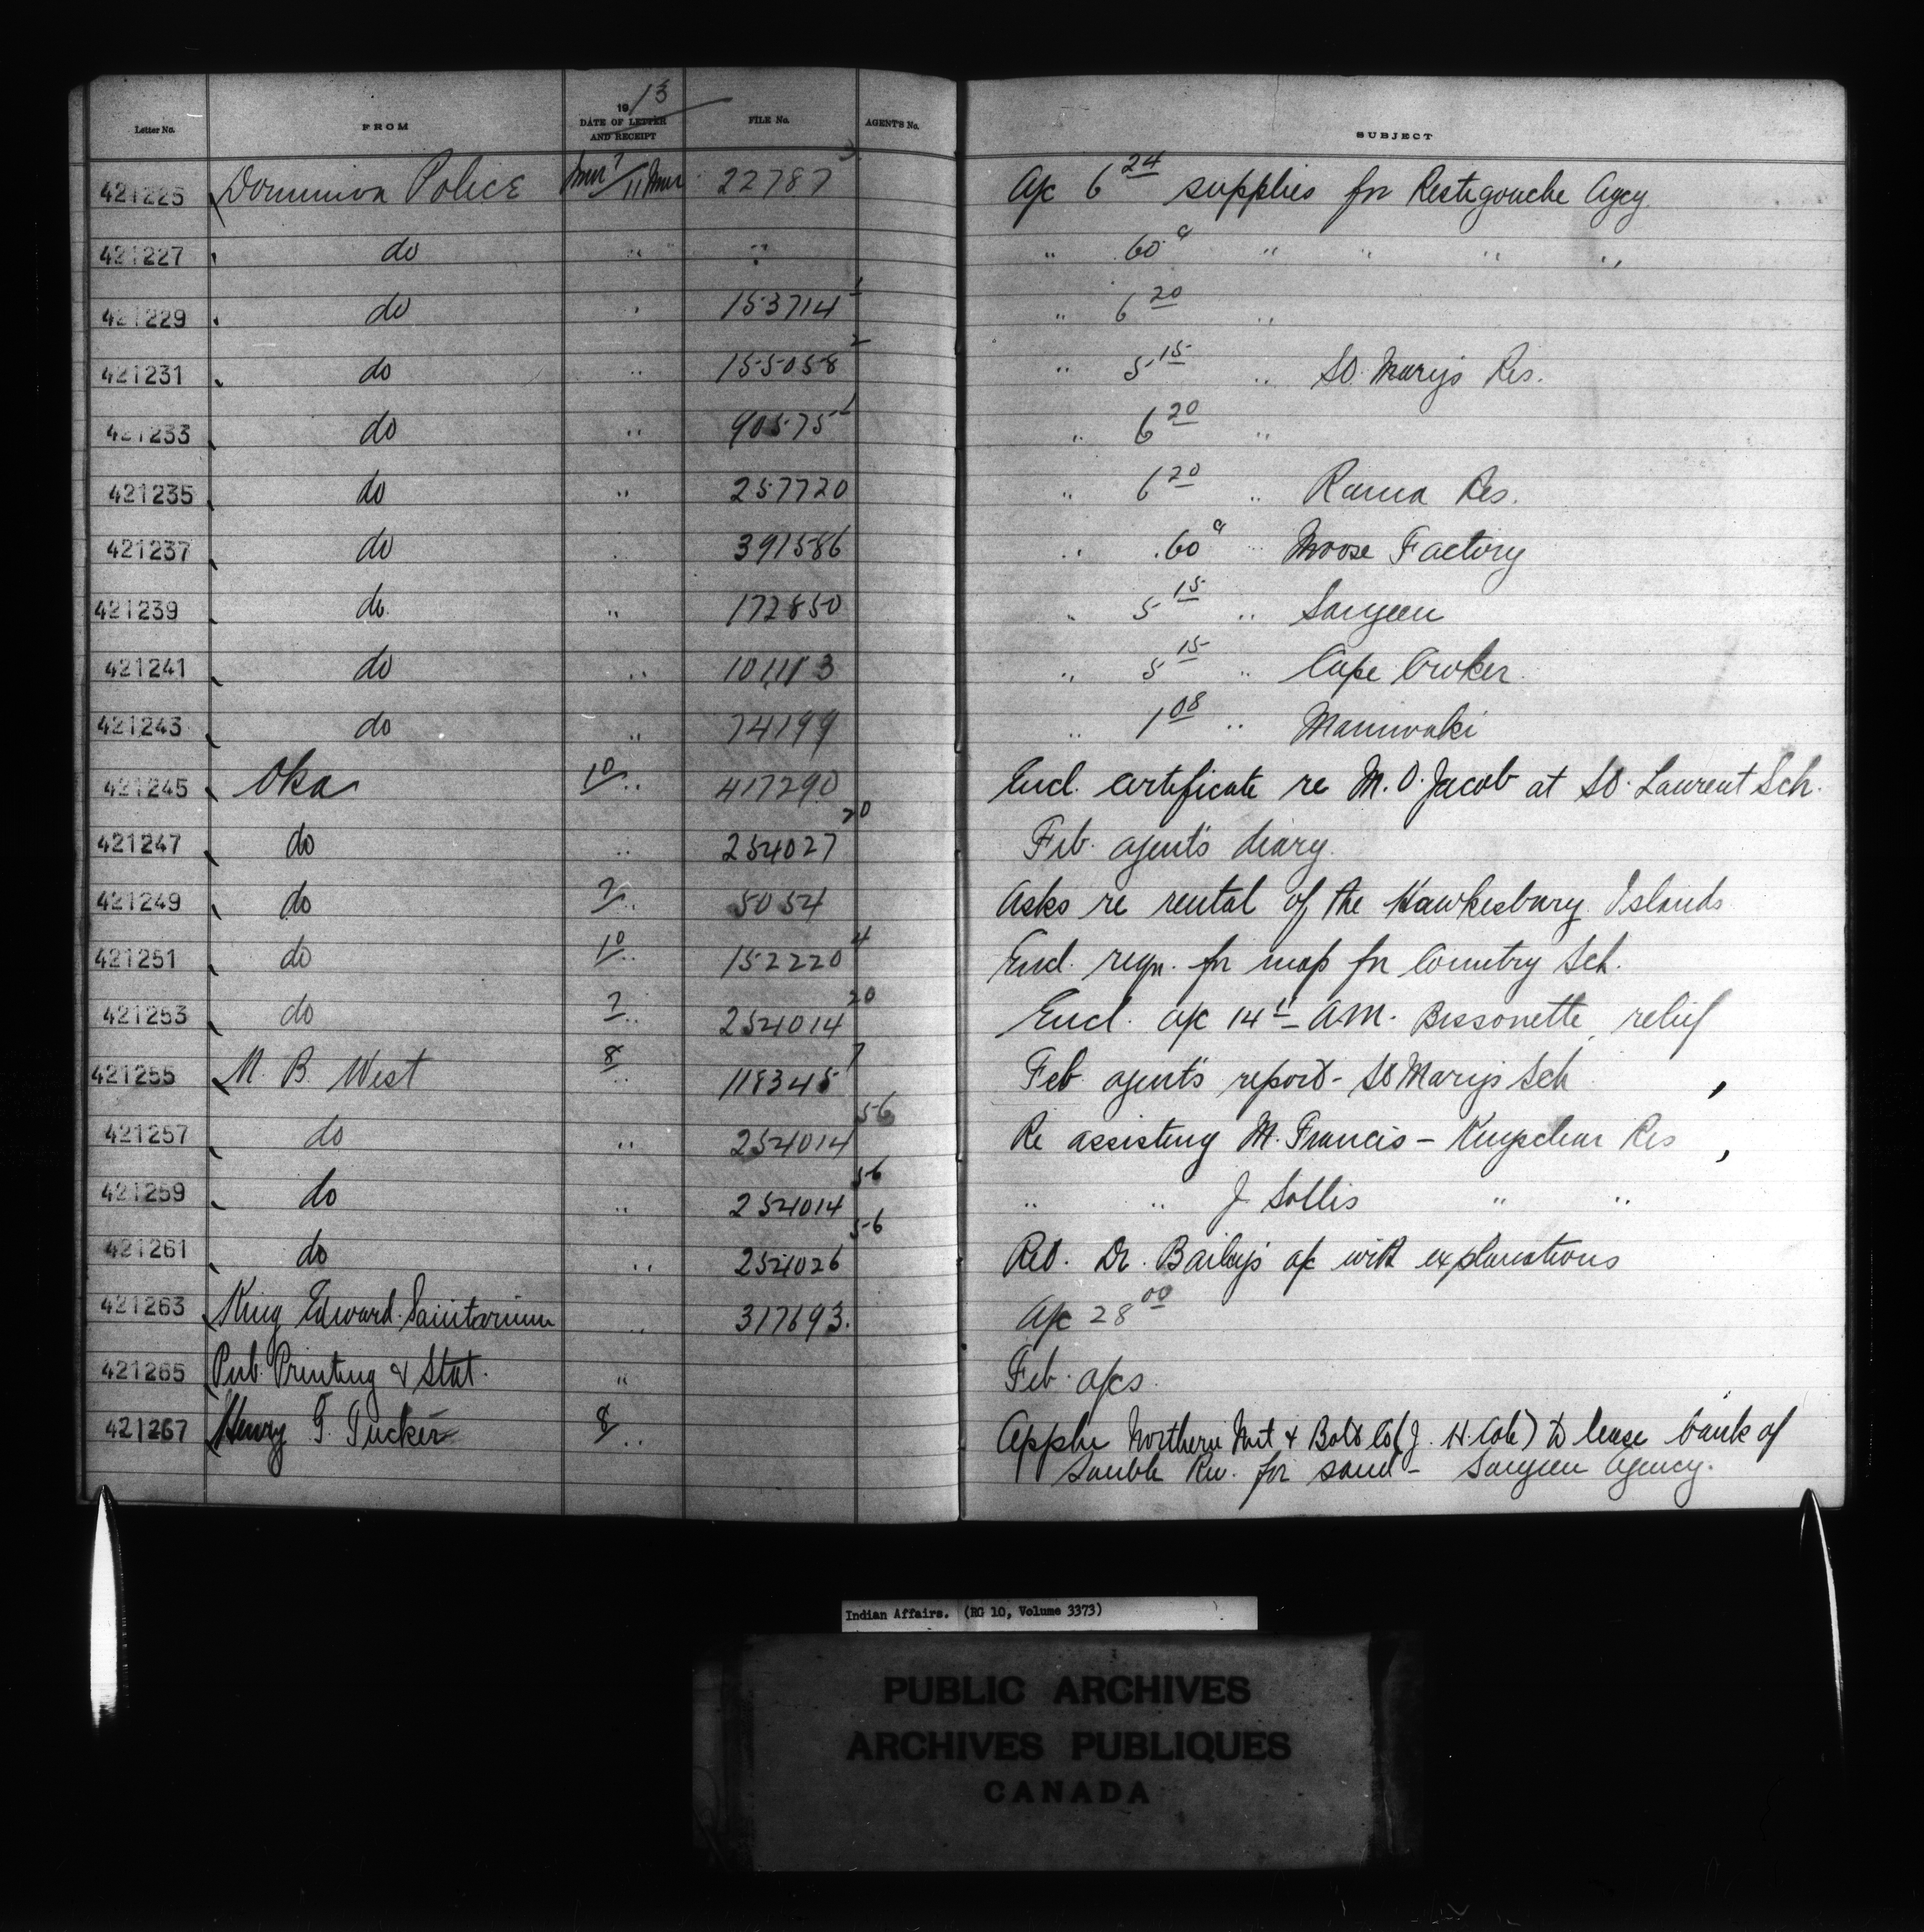 Letter No. FROM 19/13 DATE OF LETTER AND RECEIPT FILE No. AGENT'S No. SUBJECT
421225 Dominion Police Mar 7/11 Mar 22787 3 A/c 6 24 supplies for Restigouche Agcy
421227 do " " " .60 c " " " "
421229 do " 153714 1 " 6 20 "
421231 do " 155058 2 " 5 15 " St. Mary's Res.
421233 do " 90575 1 " 6 20 "
421235 do " 257720 " 6 20 " Rama Res.
421237 do " 391586 " .60 c " Moose Factory
421239 do " 172850 " 5 15 " Saugeen
421241 do " 101113 " 5 15 " Cape Croker
421243 do " 74199 " 1 08 " Maniwaki
421245 Oka 10 " 417290 Encl. certificate re M. O. Jacob at St. Laurent Sch.
421247 do " 254027 20 Feb. agent's diary
421249 do 7 " 5054 Asks re rental of the Hawkesbury Islands
421251 do 10 " 152220 4 Encl. reqn. for map for Country Sch.
421253 do 7 " 254014 20 Encl. a/c 14 A.M. Bissonette, relief
421255 N. B. West 8 " 118345 7 Feb agent's report - St Mary's Sch
421257 do " 254014 56 Re assisting M. Francis - Kingsclear Res
421259 do " 254014 56 " " J. Sollis " "
421261 do " 254026 56 Ret. Dr. Bailey's a/c with explanations
421263 King Edward Sanitorium " 317693. A/c 28 00
421265 Pub. Printing & Stat. " Feb. a/cs
421267 Henry G. Tucker 8 " Appln Northern Nut & Bolt Co (J. H. Cole) to lease bank of
Sauble Riv. for sand - Saugeen Agency.
Indian Affairs. (RG 10, Volume 3373)
PUBLIC ARCHIVES
ARCHIVES PUBLIQUES
CANADA